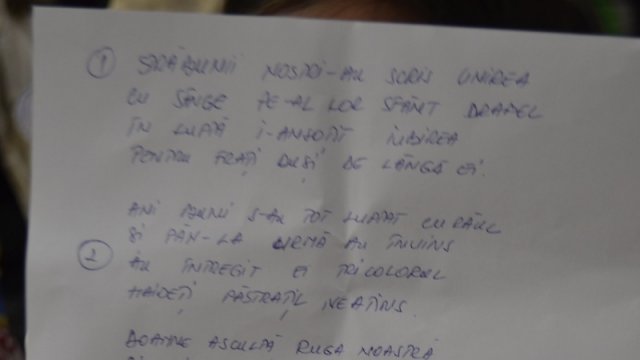 ① STRĂBUNII NOSTRI-AU SCRIS UNIREA
CU SÂNGE PE-AL LOR SFÂNT DRAPEL
ÎN LUPTĂ I-ANSOȚIT IUBIREA
PENTRU FRAȚI DUȘI DE LÂNGĂ EI.
ANI BUNII S-AU TOT LUPTAT CU RĂUL
ȘI PÂN-LA URMĂ AU ÎNVINS
② AU ÎNTREGIT EI TRICOLORUL
HAIDEȚI PĂSTRAȚIL NEATINS.
DOAMNE ASCULTĂ RUGA NOASTRĂ